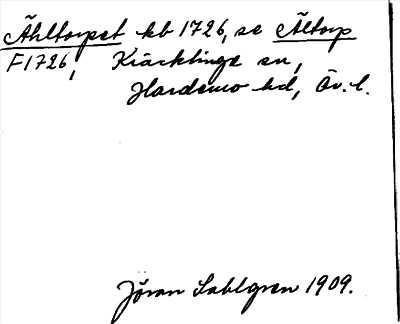 Ähltorpet kb 1726, se Ältorp
F1726, Kräcklinge sn,
Hardemo hd, Ör. l.
Jöran Sahlgren 1909.